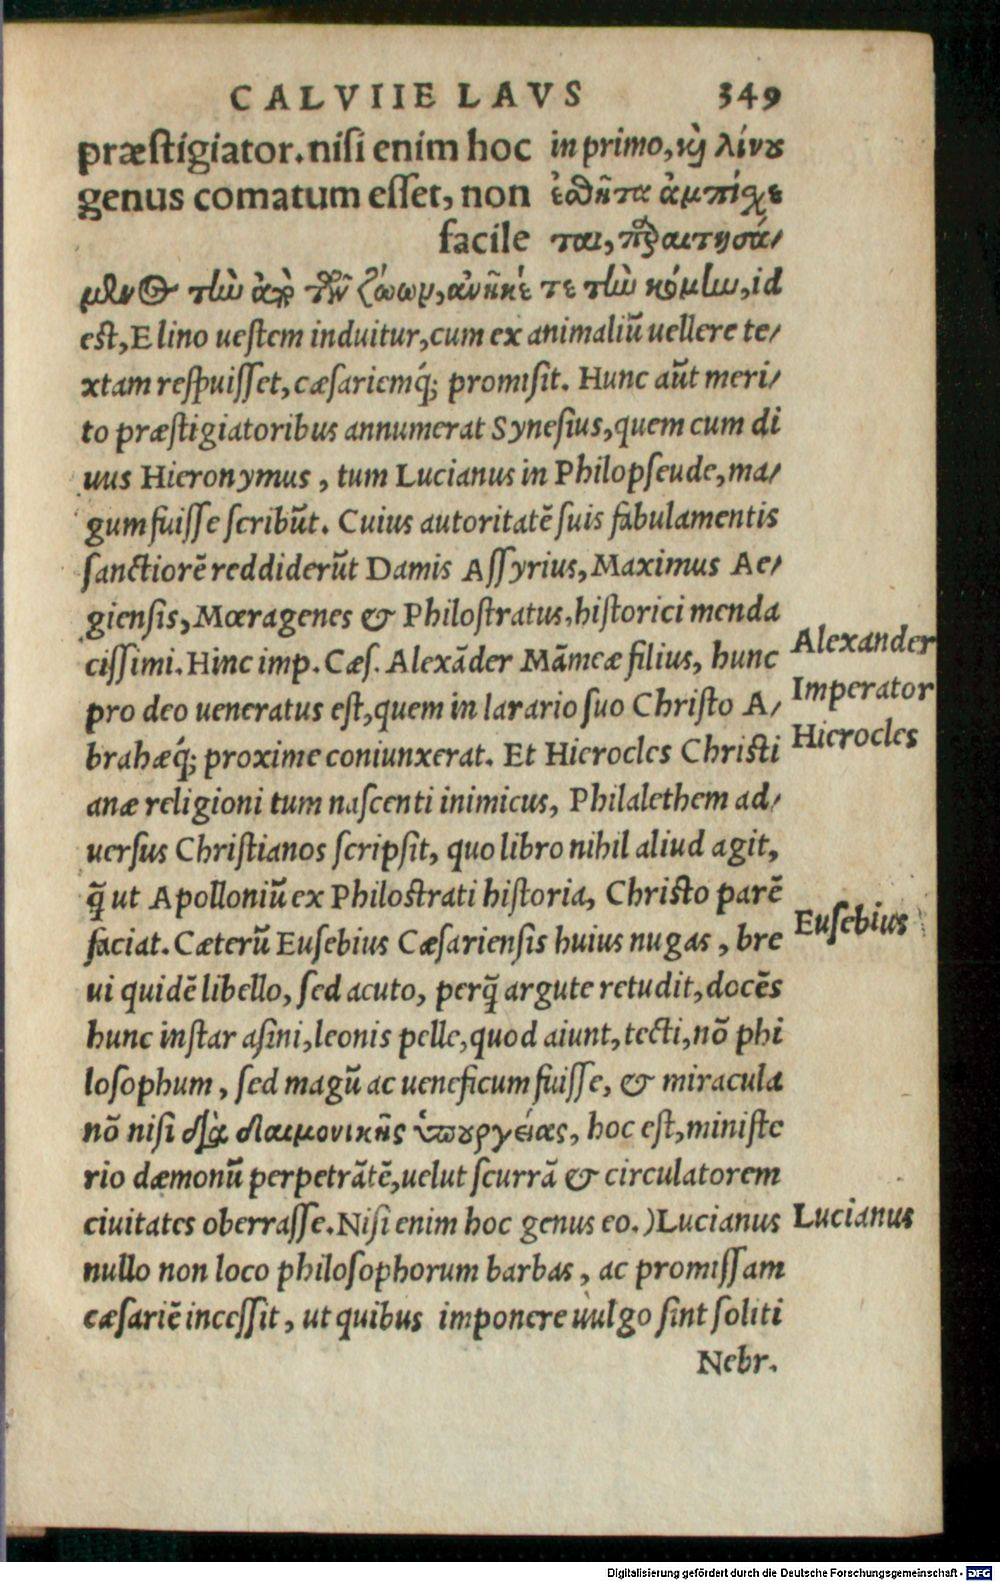 CALVIIE LAVS 349
præstigiator. nisi enim hoc
genus comatum esset, non
facile
in primo, καὶ λίνου
ἐσθῆτα ἀμπίσχε
ται, παραιτησά/
μενος τὴν ἀπὸ τῶν ζώων, ἀνῆκέ τε τὴν κόμην, id
est, E lino uestem induitur, cum ex animaliũ uellere te/
xtam respuisset, cæsariemq́; promisit. Hunc aũt meri/
to præstigiatoribus annumerat Synesius, quem cum di
uus Hieronymus, tum Lucianus in Philopseude, ma/
gum fuisse scribũt. Cuius autoritatẽ suis fabulamentis
sanctiorẽ reddiderũt Damis Assyrius, Maximus Ae/
giensis, Mœragenes & Philostratus, historici menda
cissimi. Hinc imp. Cæs. Alexãder Mãmeæ filius, hunc
pro deo ueneratus est, quem in larario suo Christo A/
brahæq́; proxime coniunxerat. Et Hierocles Christi
anæ religioni tum nascenti inimicus, Philalethem ad/
uersus Christianos scripsit, quo libro nihil aliud agit,
q̃ ut Apolloniũ ex Philostrati historia, Christo parẽ
faciat. Cæterũ Eusebius Cæsariensis huius nugas, bre
ui quidẽ libello, sed acuto, perq̃ argute retudit, docẽs
hunc instar asini, leonis pelle, quod aiunt, tecti, nõ phi
losophum, sed magũ ac ueneficum fuisse, & miracula
nõ nisi διὰ δαιμονικῆς ὑπουργείας, hoc est, ministe
rio dæmonũ perpetrãtẽ, uelut scurrã & circulatorem
ciuitates oberrasse. Nisi enim hoc genus co.) Lucianus
nullo non loco philosophorum barbas, ac promissam
cæsariẽ incessit, ut quibus imponere uulgo sint soliti
Nebr.
Alexander
Imperator
Hierocles
Eusebius
Lucianus
Digitalisierung gefördert durch die Deutsche Forschungsgemeinschaft - DFG